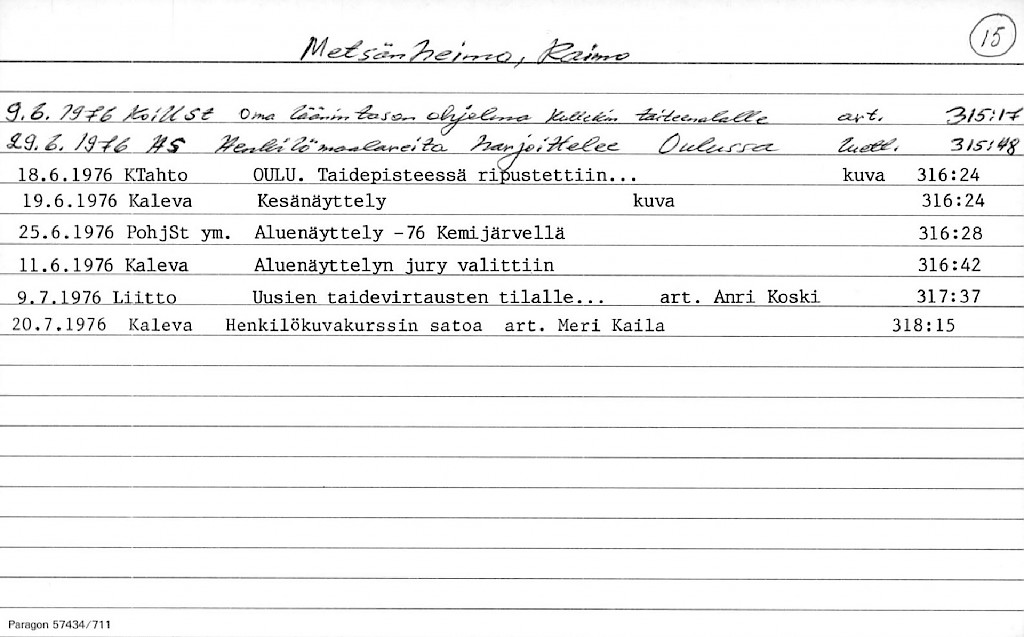 15
Metsänheimo, Raimo
9.6.1976 KoillSt Oma läänintason ohjelma kullekin taiteenalalle art. 315:17
29.6.1976 HS Henkilömaalareita harjoittelee Oulussa luett. 315:48
18.6.1976 KTahto OULU. Taidepisteessä ripustettiin... kuva 316:24
19.6.1976 Kaleva Kesänäyttely kuva 316:24
25.6.1976 PohjSt ym. Aluenäyttely -76 Kemijärvellä 316:28
11.6.1976 Kaleva Aluenäyttelyn jury valittiin 316:42
9.7.1976 Liitto Uusien taidevirtausten tilalle... art. Anri Koski 317:37
20.7.1976 Kaleva Henkilökuvakurssin satoa art. Meri Kaila 318:15
Paragon 57434/711